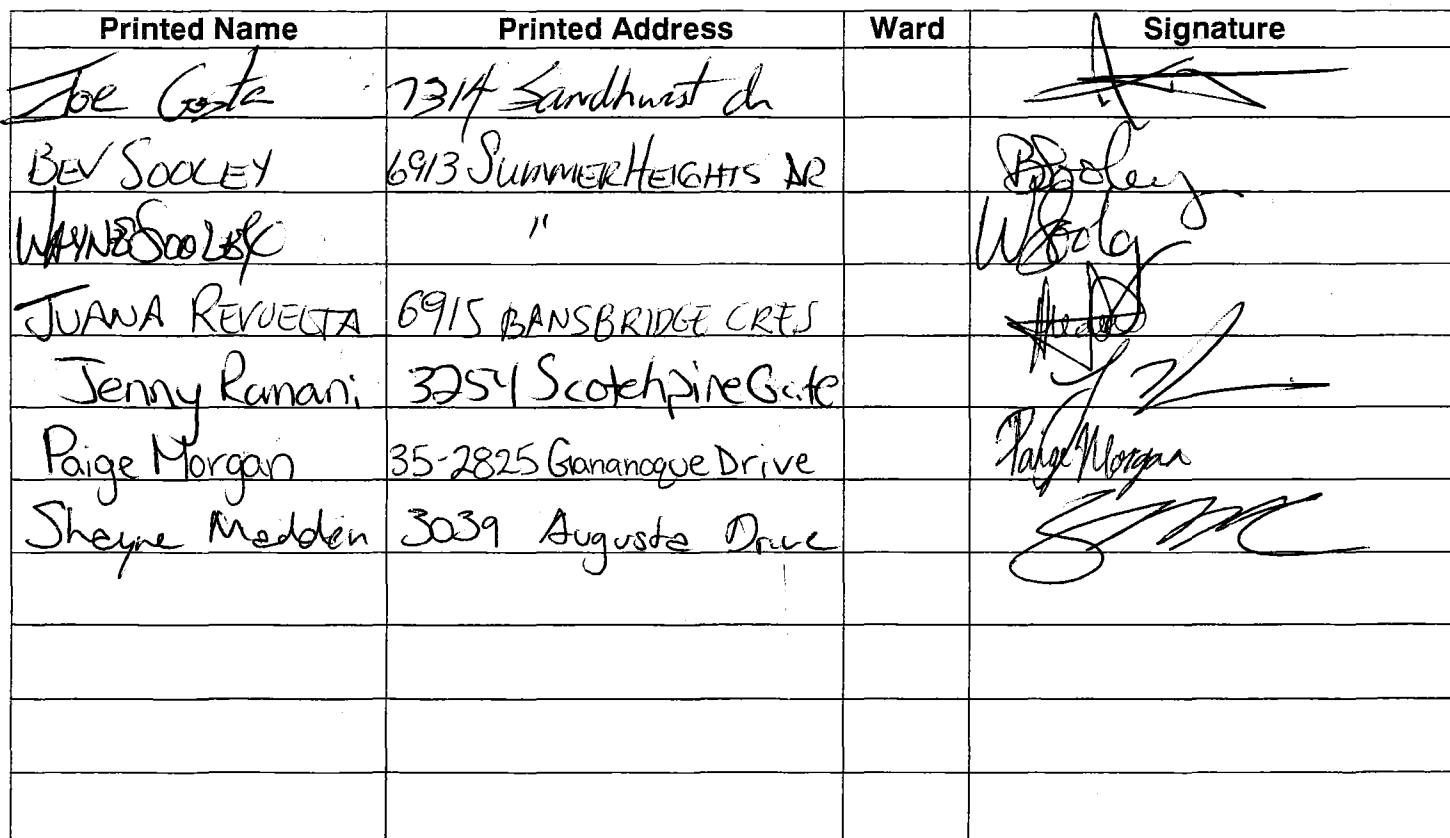 Printed Name Printed Address Ward Signature
Joe Costa 7314 Sandhurst dr
BEV SOOLEY 6913 SUMMER HEIGHTS DR BSooley
WAYNE SOOLEY " WSooley
JUANA REVUELTA 6915 BANSBRIDGE CRES
Jenny Ramani 3254 Scotchpine Gate
Paige Morgan 35-2825 Gananoque Drive Paige Morgan
Shayne Madden 3039 Augusta Drive